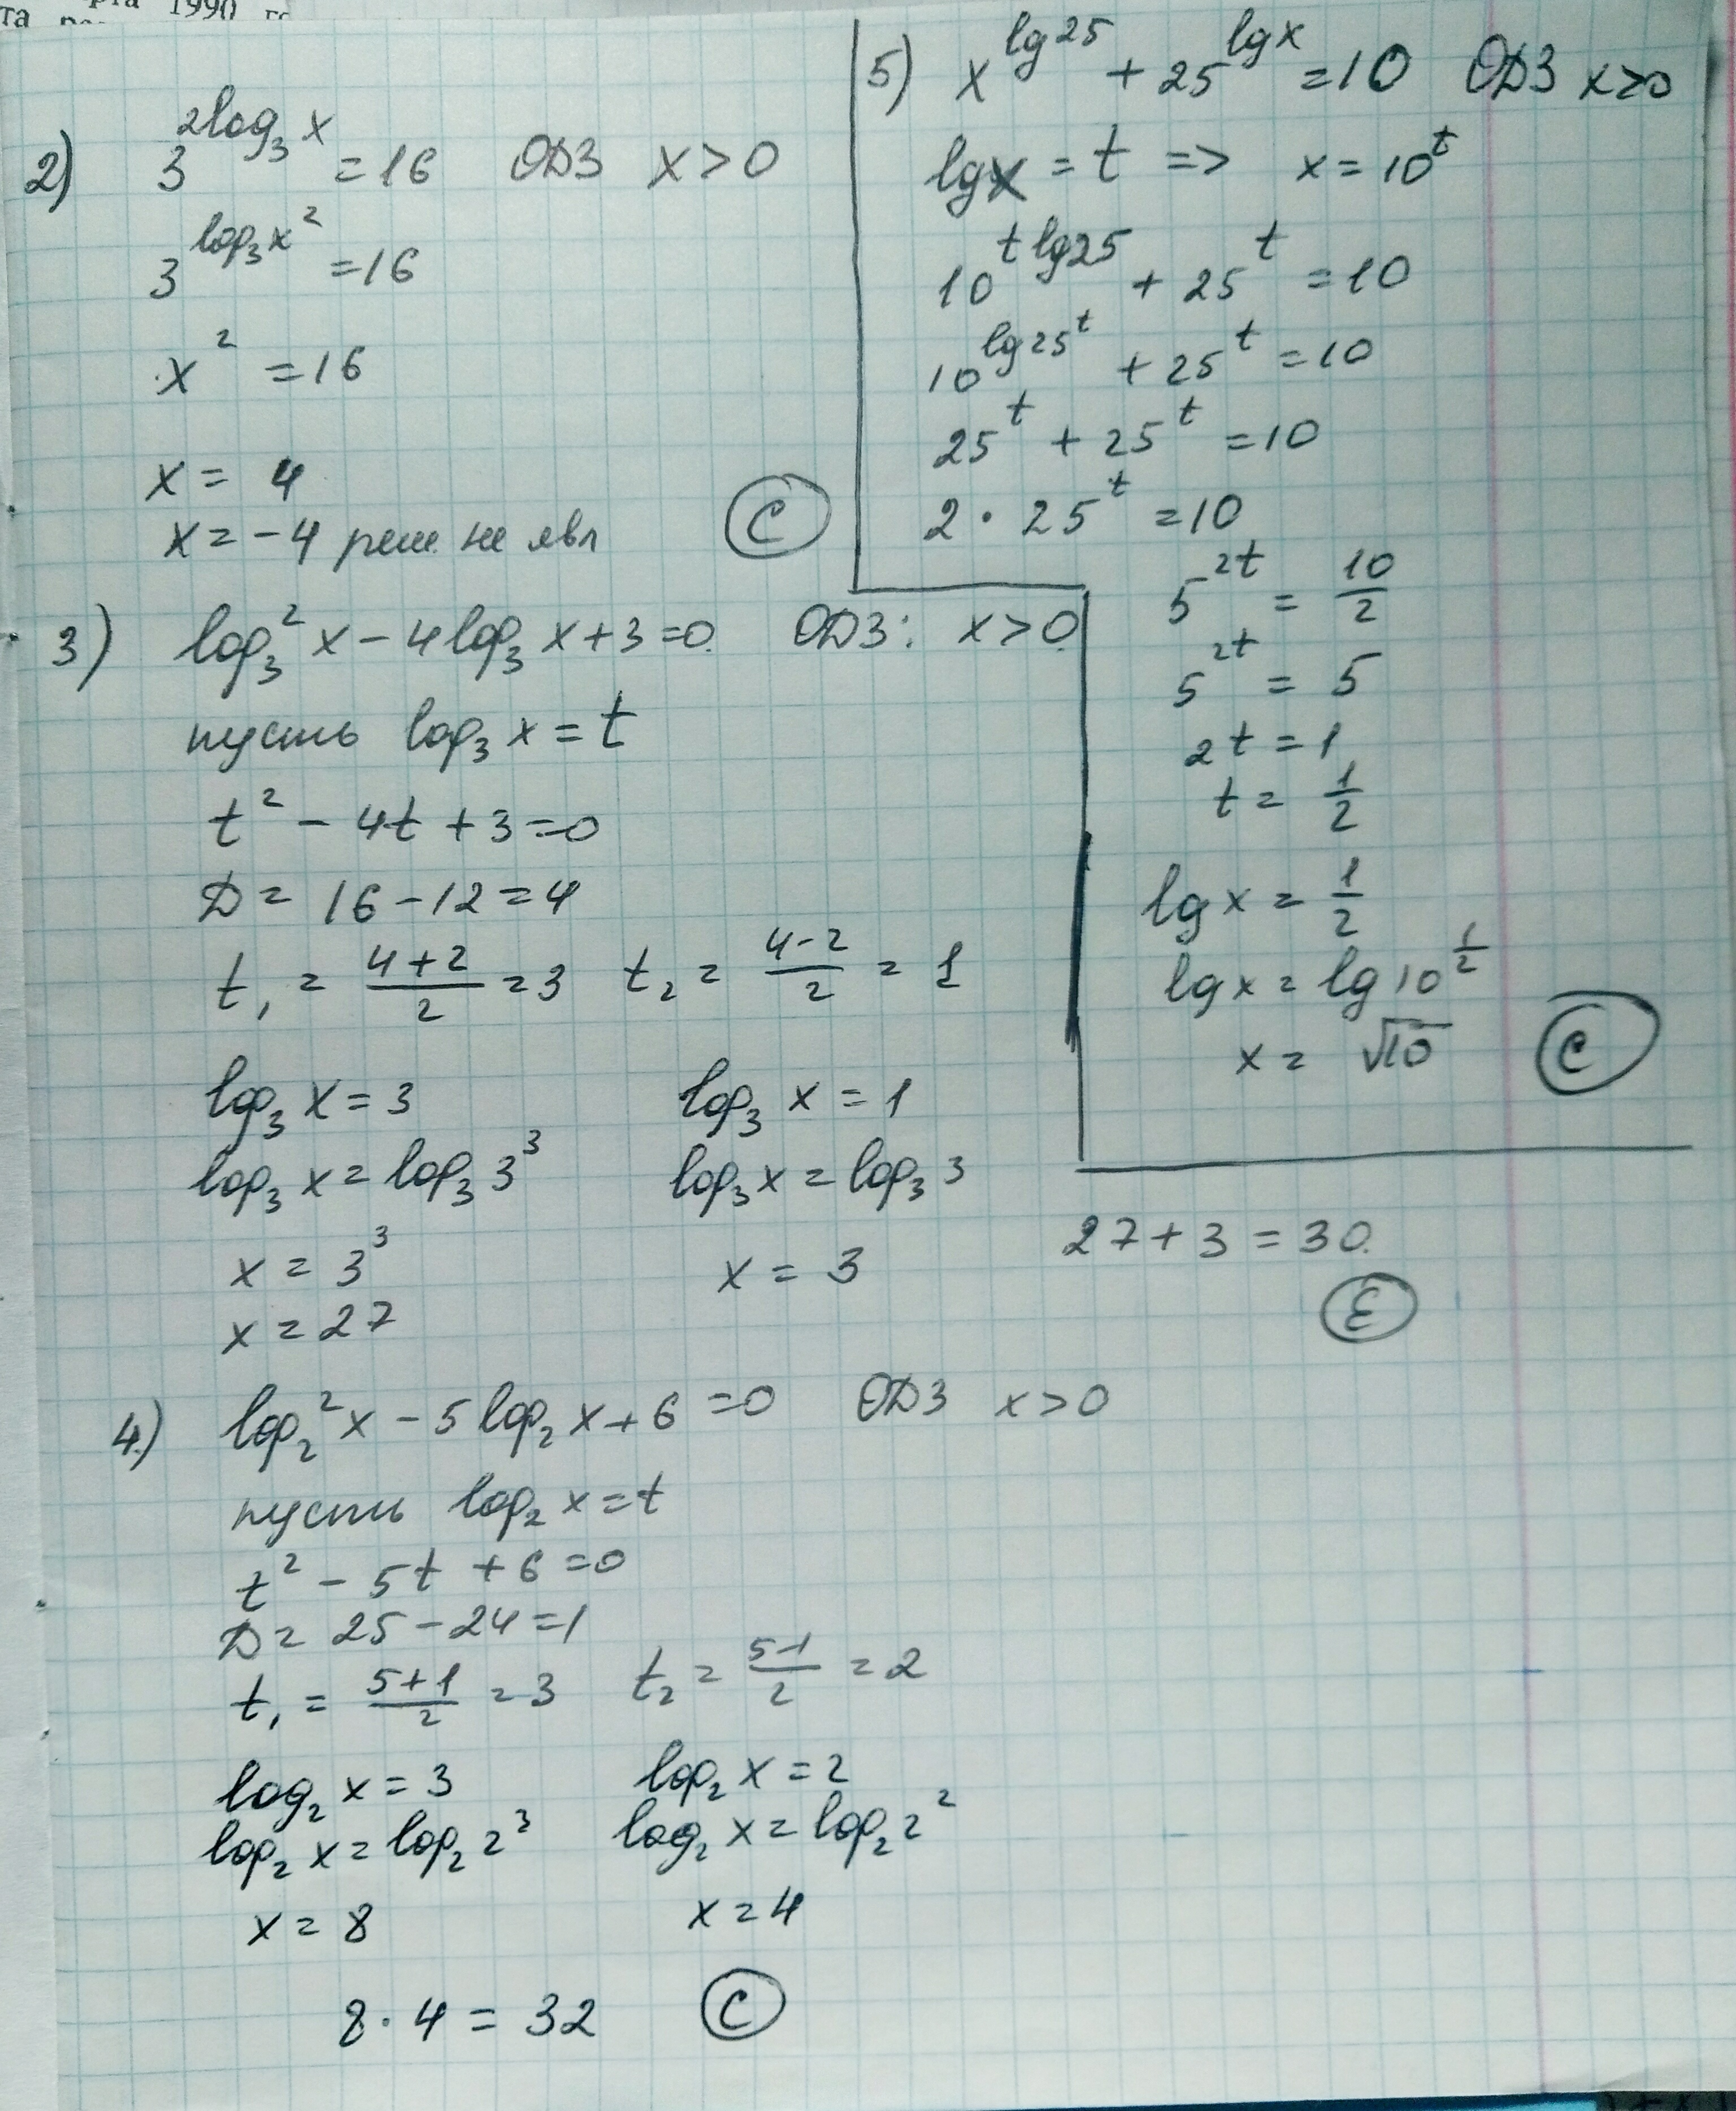 рта 1990 г
та
2) 3^{2log_3 x} = 16 ОДЗ x > 0
3^{log_3 x^2} = 16
x^2 = 16
x = 4
x = -4 реш. не явл
C
3) log_3^2 x - 4 log_3 x + 3 = 0. ОДЗ: x > 0.
пусть log_3 x = t
t^2 - 4t + 3 = 0
D = 16 - 12 = 4
t_1 = \frac{4+2}{2} = 3 t_2 = \frac{4-2}{2} = 1
log_3 x = 3 log_3 x = 1
log_3 x = log_3 3^3 log_3 x = log_3 3
x = 3^3 x = 3 27 + 3 = 30.
x = 27 E
4.) log_2^2 x - 5 log_2 x + 6 = 0 ОДЗ x > 0
пусть log_2 x = t
t^2 - 5t + 6 = 0
D = 25 - 24 = 1
t_1 = \frac{5+1}{2} = 3 t_2 = \frac{5-1}{2} = 2
log_2 x = 3 log_2 x = 2
log_2 x = log_2 2^3 log_2 x = log_2 2^2
x = 8 x = 4
8 · 4 = 32 C
5) x^{lg 25} + 25^{lg x} = 10 ОДЗ x > 0
lg x = t => x = 10^t
10^{t lg 25} + 25^t = 10
10^{lg 25^t} + 25^t = 10
25^t + 25^t = 10
2 · 25^t = 10
5^{2t} = \frac{10}{2}
5^{2t} = 5
2t = 1
t = \frac{1}{2}
lg x = \frac{1}{2}
lg x = lg 10^{\frac{1}{2}}
x = √10 C